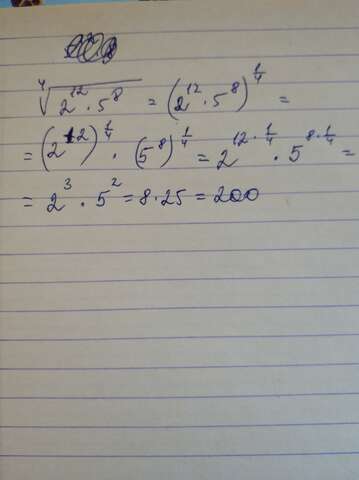 ⁴√(2¹² · 5⁸) = (2¹² · 5⁸)^(1/4) =
= (2¹²)^(1/4) · (5⁸)^(1/4) = 2^(12 · 1/4) · 5^(8 · 1/4) =
= 2³ · 5² = 8 · 25 = 200